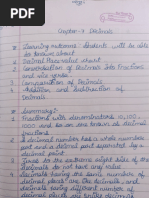 Chapter-7 Decimals
Learning outcomes: Students will be able
to know about
Decimal Place value chart
Conversion of Decimals into fractions
and vice versa
Comparison of Decimals
Addition and Subtraction of
Decimals.
Summary:-
Fractions with denominators 10, 100,
1000 and so on are known as decimal
fractions.
A decimal number has a whole number
part and decimal part separated by a
decimal point.
Zeros to the extreme right side of the
decimals do not change its value.
Decimals having the same number of decimal
places are like decimals, and
decimals having different number of